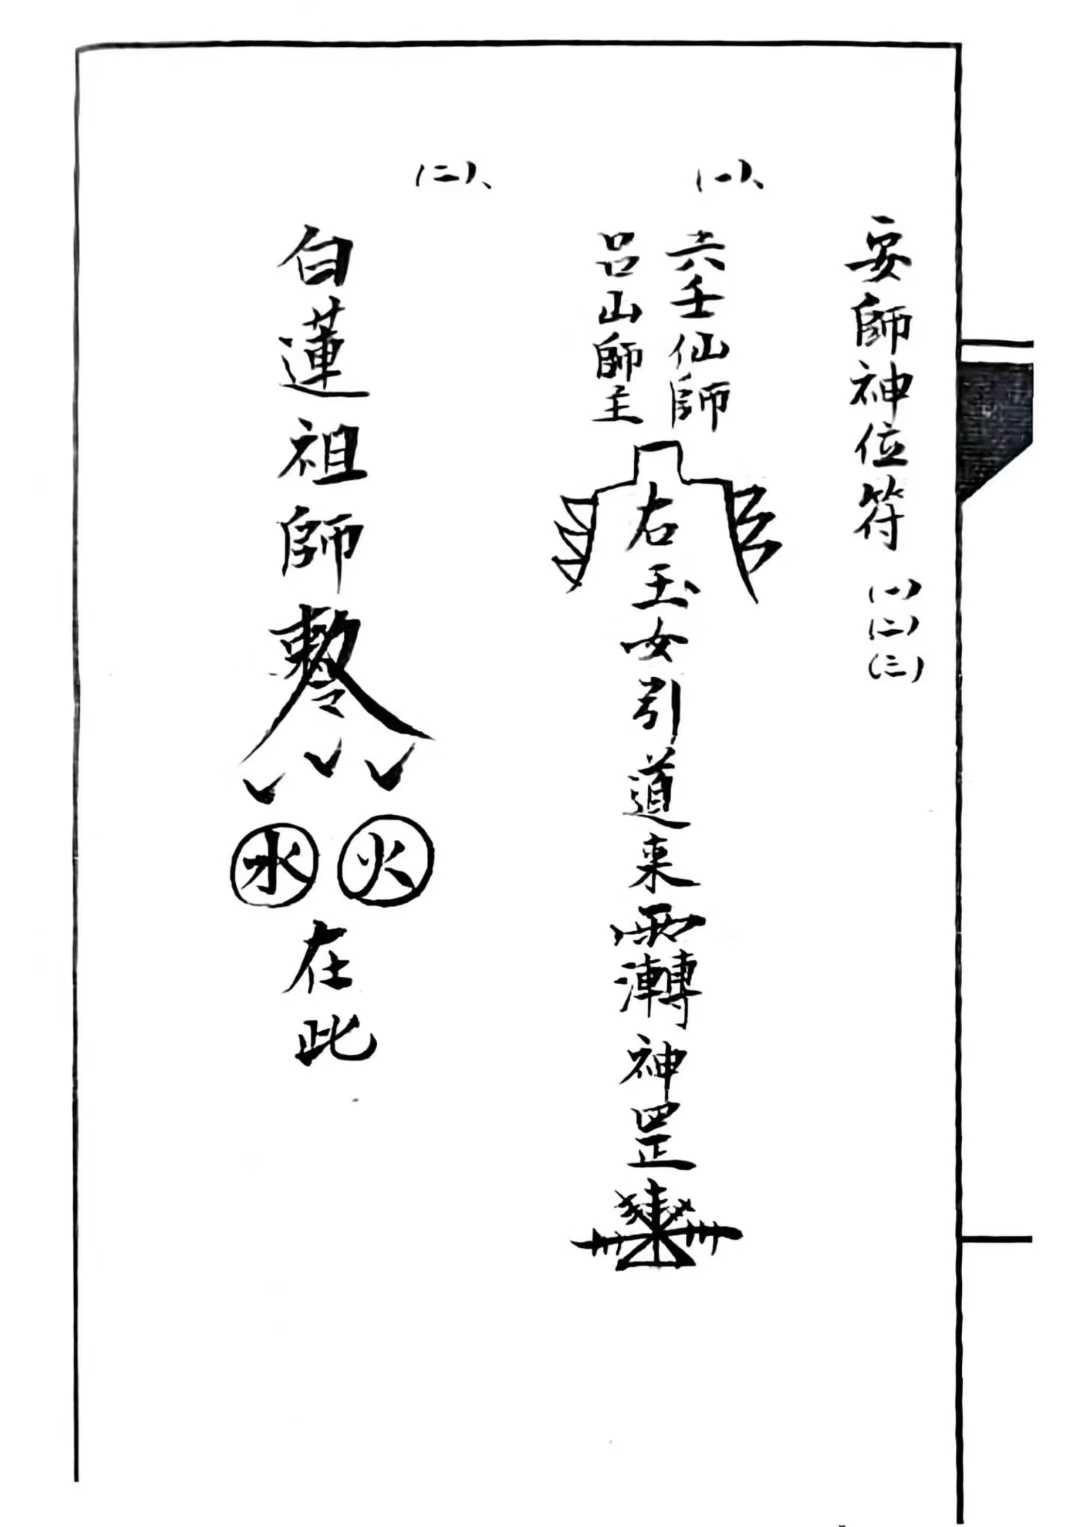 安師神位符 (一)(二)(三)
(一)、
六壬仙師
呂山師主
右玉女引道来
神罡
(二)、
白蓮祖師
火
水
在此